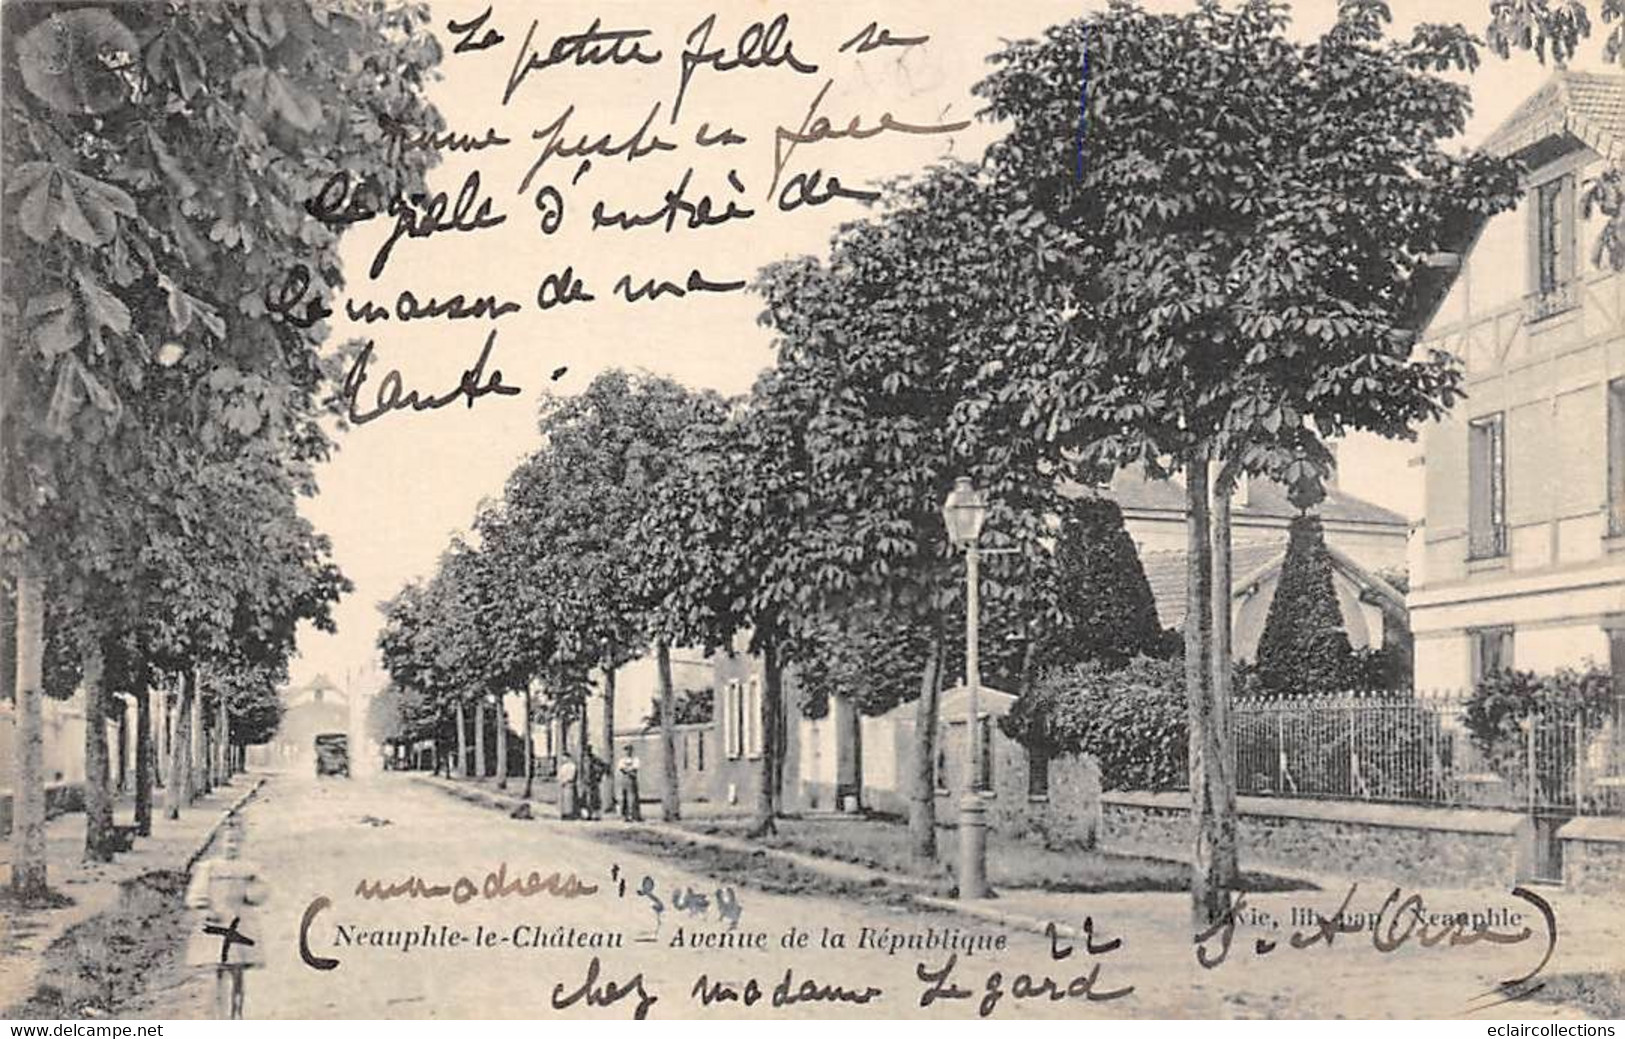 La petite fille se
jeste en face
la grille d'entrée de
la maison de ma
tante.
mon adresse
(Neauphle-le-Château — Avenue de la République 22
S. et Oise)
Pavie, lib. pap. Neauphle
chez madame Legard
eclaircollections